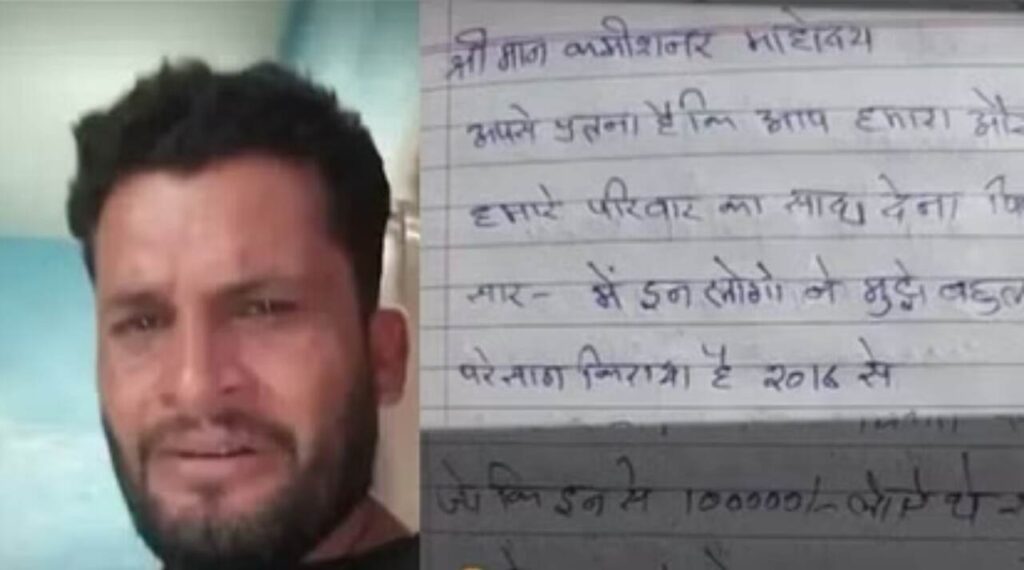 श्रीमान कमीशनर माहोदय
अपसे प्रतना है कि आप हमारा और
हमारे परिवार का साथ देना
सार- में इन लोगो ने मुझे बहुत
परेसान किराया है २०१६ से
जो कि इन से 100000/- लोये थे